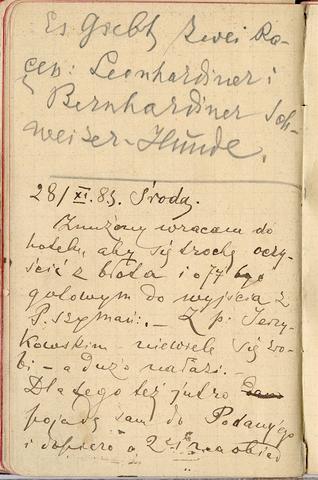 Es Giebt zwei Ra-
cen: Leonhardiner i
Bernhardiner Sch-
weizer-Hunde.
28/XI.83. Środa.
Zmużony wracam do
hotelu, aby się trochę oczy-
ścić z błota i o 7½ być
gotowym do wyjścia z
P. Szymań: — Z p: Jerzy-
kowskim niewiele się zro-
bi — a dużo nałazi. —
Dla tego też jutro
pojadę sam do
i dopiero o 2 na obiad